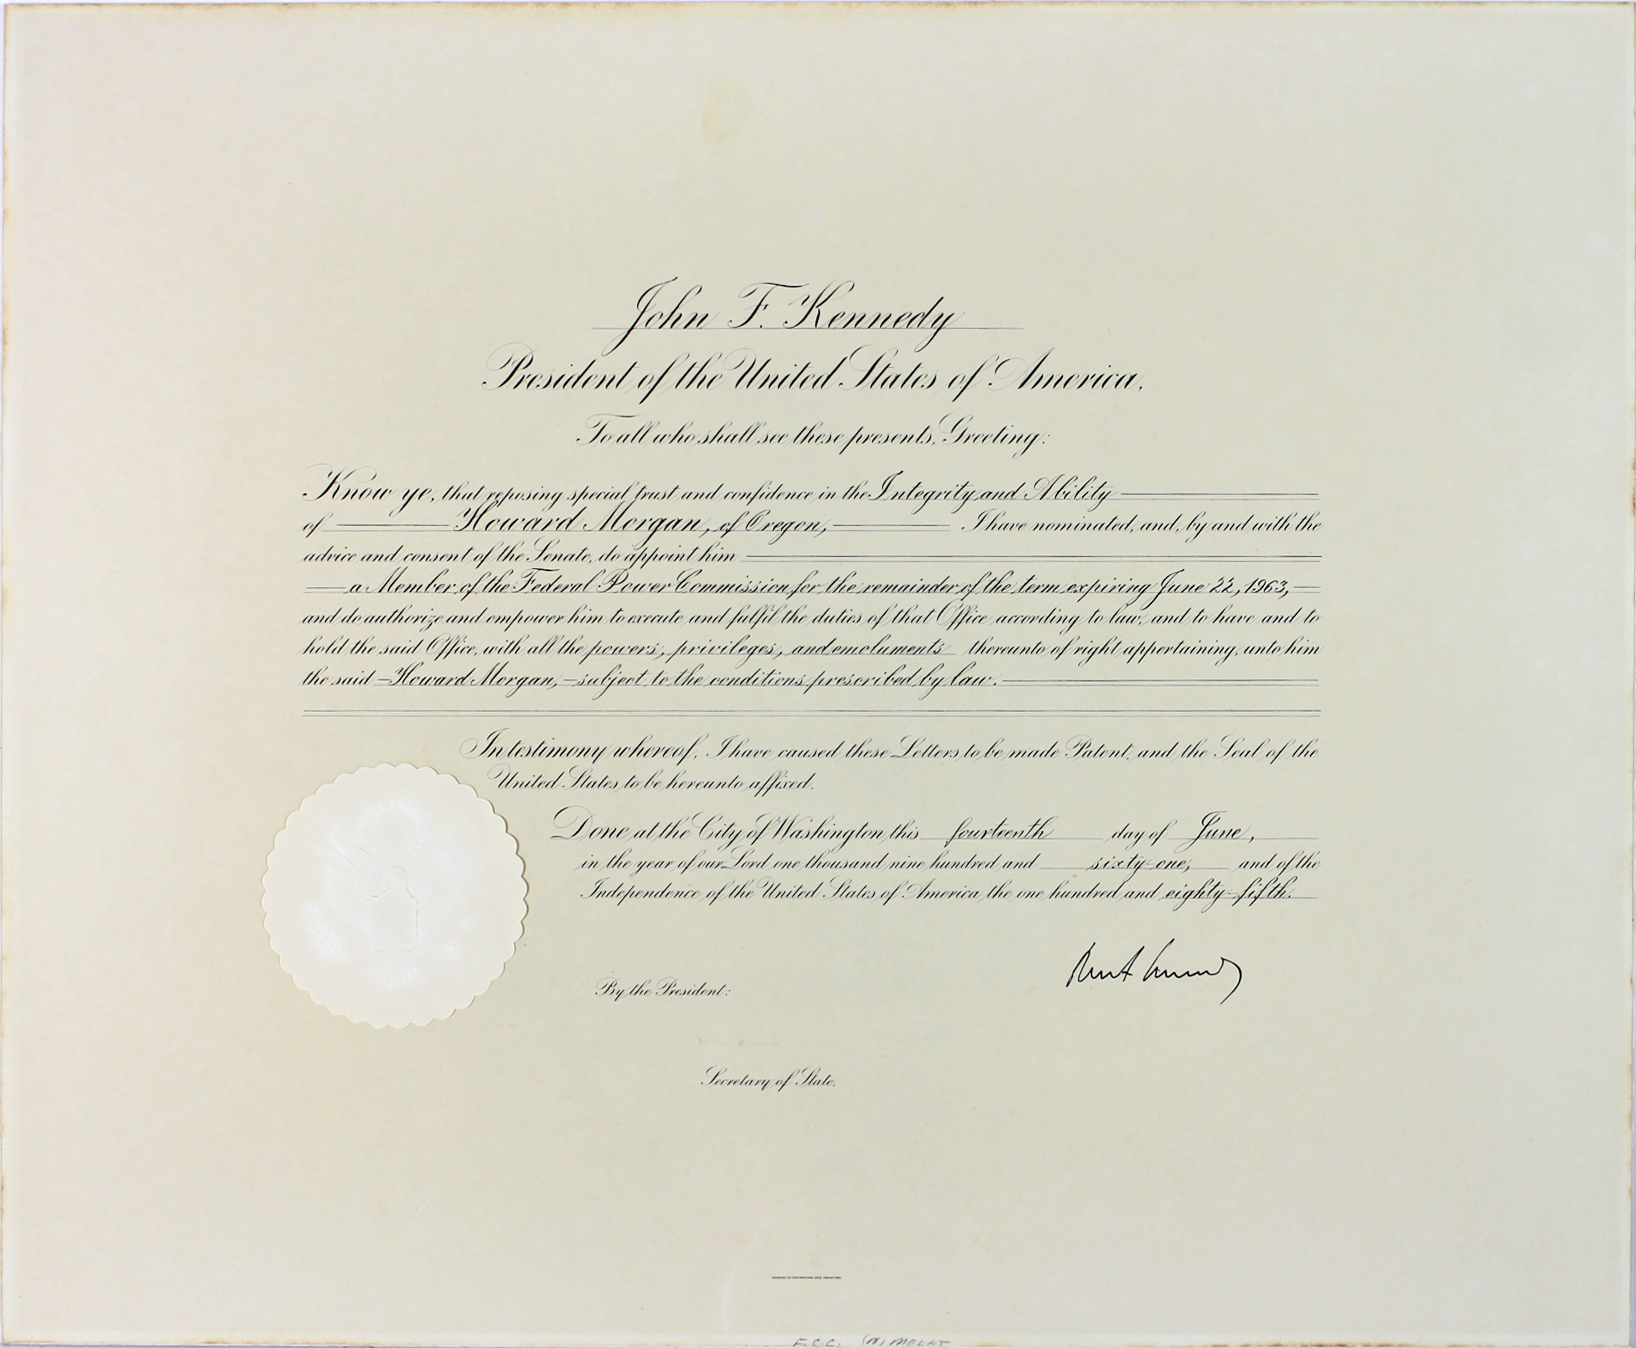 John F. Kennedy
President of the United States of America.
To all who shall see these presents, Greeting:
Know ye, that reposing special trust and confidence in the Integrity and Ability
of Howard Morgan, of Oregon, I have nominated, and, by and with the
advice and consent of the Senate, do appoint him
a Member of the Federal Power Commission for the remainder of the term expiring June 22, 1963,
and do authorize and empower him to execute and fulfil the duties of that Office according to law, and to have and to
hold the said Office, with all the powers, privileges, and emoluments thereunto of right appertaining, unto him
the said Howard Morgan, subject to the conditions prescribed by law.
In testimony whereof, I have caused these Letters to be made Patent, and the Seal of the
United States to be hereunto affixed.
Done at the City of Washington this fourteenth day of June,
in the year of our Lord one thousand nine hundred and sixty-one, and of the
Independence of the United States of America the one hundred and eighty-fifth.
By the President:
Secretary of State.
BUREAU OF ENGRAVING AND PRINTING
F.C.C. MOUNT